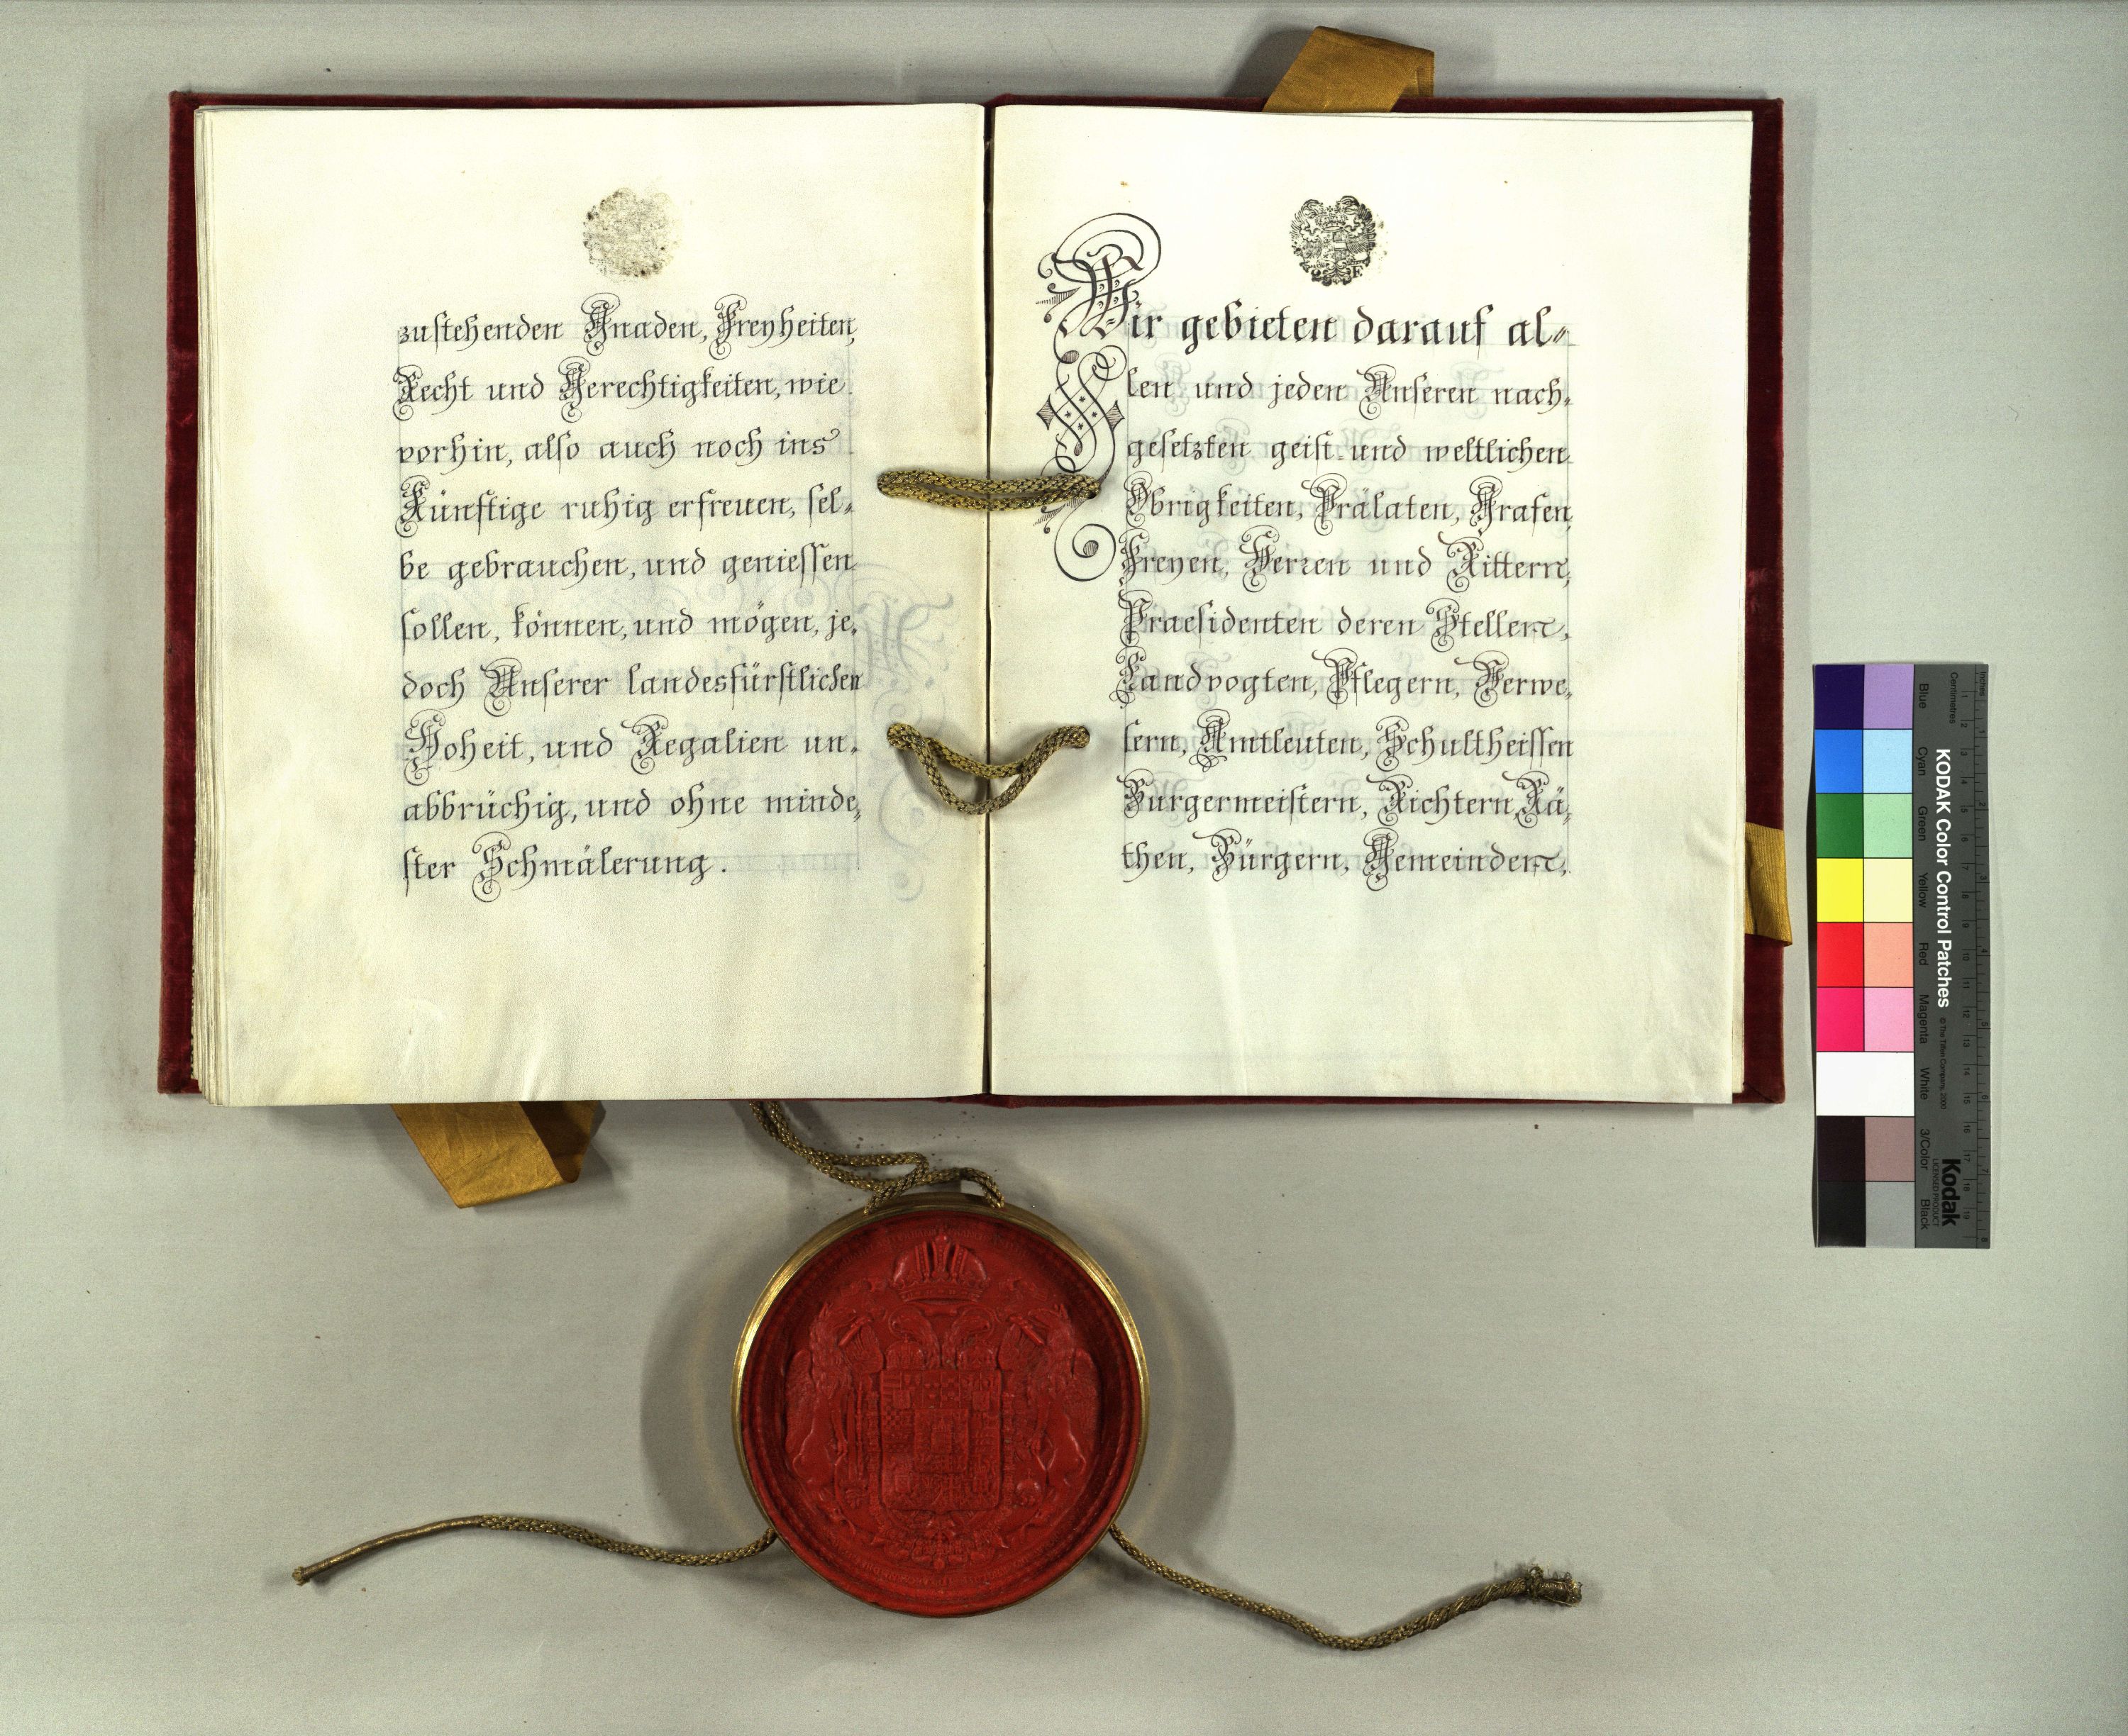 zustehenden Gnaden, Freyheiten,
Recht und Gerechtigkeiten, wie
vorhin, also auch noch ins
Künftige ruhig erfreuen, sel-
be gebrauchen, und geniessen
sollen, können, und mögen, je-
doch Unserer landesfürstlichen
Hoheit, und Regalien un-
abbrüchig, und ohne minde-
ster Schmälerung.
Wir gebieten darauf al-
len und jeden Unseren nach-
gesetzten geist- und weltlichen
Obrigkeiten, Prälaten, Grafen,
Freyen, Herren und Rittern,
Praesidenten deren Stellen,
Landvogten, Pflegern, Verwe-
sern, Amtleuten, Schultheissen
Burgermeistern, Richtern, Rä-
then, Bürgern, Gemeinden,
KODAK Color Control Patches
© The Tiffen Company, 2000
Kodak
LICENSED PRODUCT
Inches
Centimetres
Blue
Cyan
Green
Yellow
Red
Magenta
White
3/Color
Black
1 2 3 4 5 6 7 8
1 2 3 4 5 6 7 8 9 10 11 12 13 14 15 16 17 18 19